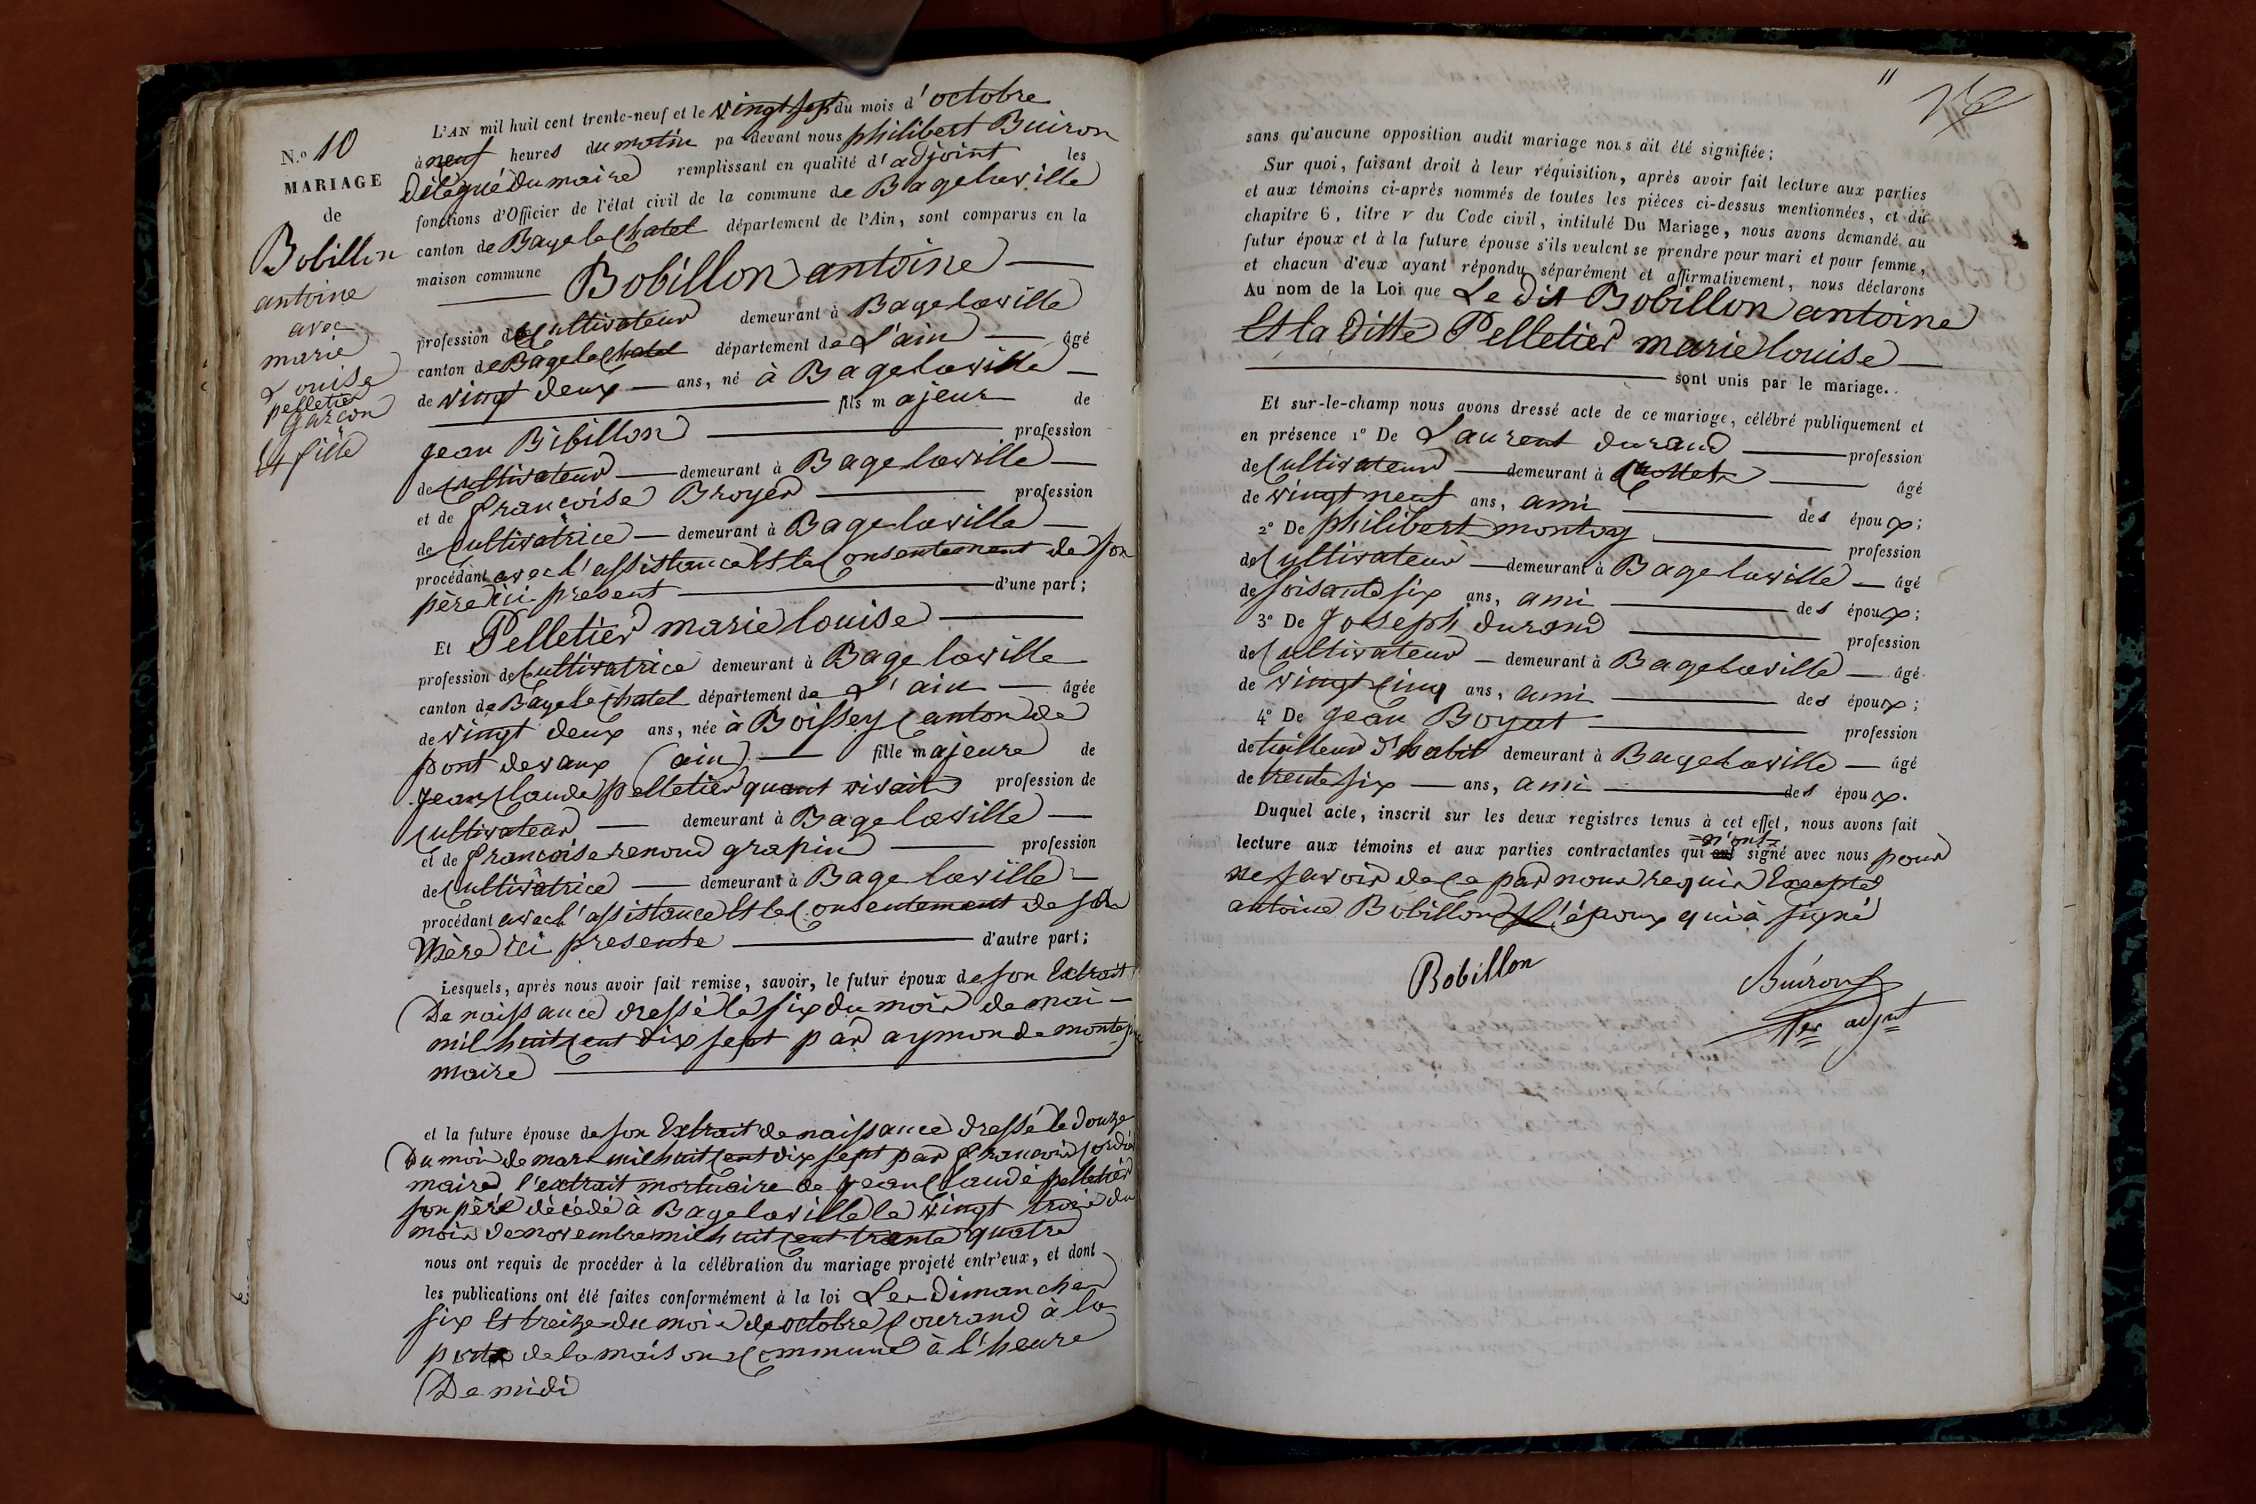 N.º 10
MARIAGE
de
Bobillon
antoine
avec
marie
Louise
pelletier
garcon
Et fille
L'AN mil huit cent trente-neuf et le vingt sept du mois d'octobre
à neuf heures du matin pa devant nous philibert Buiron
Délégué du maire remplissant en qualité d'adjoint les
fonctions d'Officier de l'état civil de la commune de Bagelaville
canton de Bage le Chatel département de l'Ain, sont comparus en la
maison commune Bobillon antoine
profession de Cultivateur demeurant à Bagelaville
canton de Bage le Chatel département de L'ain âgé
de vingt deux ans, né à Bagelaville
fils majeur de
Jean Bibillon profession
de Cultivateur demeurant à Bagelaville
et de françoise Broyer profession
de Cultivatrice demeurant à Bagelaville
procédant avec l'assistance Et le Consentement de son
père ici present d'une part;
Et Pelletier marie louise
profession de Cultivatrice demeurant à Bage laville
canton de Bage le Chatel département de L'ain âgée
de vingt deux ans, née à Boissey Canton de
pont devaux (ain) fille majeure de
Jean Claude pelletier quant vivait profession de
Cultivateur demeurant à Bagelaville
et de francoise renoud grapin profession
de Cultivatrice demeurant à Bage laville
procédant avec l'assistance Et le Consentement de sa
Mère ici presente d'autre part;
Lesquels, après nous avoir fait remise, savoir, le futur époux de son Extrait
De naissance dressé le six du mois de mai
mil huit Cent dix sept par aymon de
maire
et la future épouse de son Extrait de naissance dressé le Douze
Du mois de mars mil huit Cent dix sept par francois
maire l'extrait mortuaire de Jean Claude pelletier
son père décédé à Bagelaville le vingt trois du
mois de novembre mil huit Cent trante quatre
nous ont requis de procéder à la célébration du mariage projeté entr'eux, et dont
les publications ont été faites conformément à la loi Les Dimanches
six Et treize du mois de octobre Courand à la
porte de la maison Commune à l'heure
De midi
11
sans qu'aucune opposition audit mariage nous ait été signifiée;
Sur quoi, faisant droit à leur réquisition, après avoir fait lecture aux parties
et aux témoins ci-après nommés de toutes les pièces ci-dessus mentionnées, et du
chapitre 6, titre v du Code civil, intitulé Du Mariage, nous avons demandé au
futur époux et à la future épouse s'ils veulent se prendre pour mari et pour femme,
et chacun d'eux ayant répondu séparément et affirmativement, nous déclarons
Au nom de la Loi que Le dit Bobillon antoine
Et la Ditte Pelletier marie louise
sont unis par le mariage.
Et sur-le-champ nous avons dressé acte de ce mariage, célébré publiquement et
en présence 1º De Laurent durand profession
de Cultivateur demeurant à Crottet âgé
de vingt neuf ans, ami des époux;
2º De philibert profession
de Cultivateur demeurant à Bagelaville âgé
de soisante six ans, ami des époux;
3º De Joseph durand profession
de Cultivateur demeurant à Bagelaville âgé
de vingt Cinq ans, ami des époux;
4º De Jean Boyat profession
de tailleur d'habit demeurant à Bagelaville âgé
de trente six ans, ami des époux.
Duquel acte, inscrit sur les deux registres tenus à cet effet, nous avons fait
lecture aux témoins et aux parties contractantes qui n'ont signé avec nous pour
ne savoir de ce par nous requis Excepté
antoine Bobillon l'époux qui à signé
Bobillon
Buiron
1er adjnt